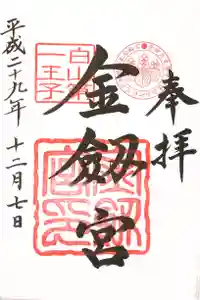 奉拝
白山第
一王子
金劔宮
平成二十九年 十二月七日